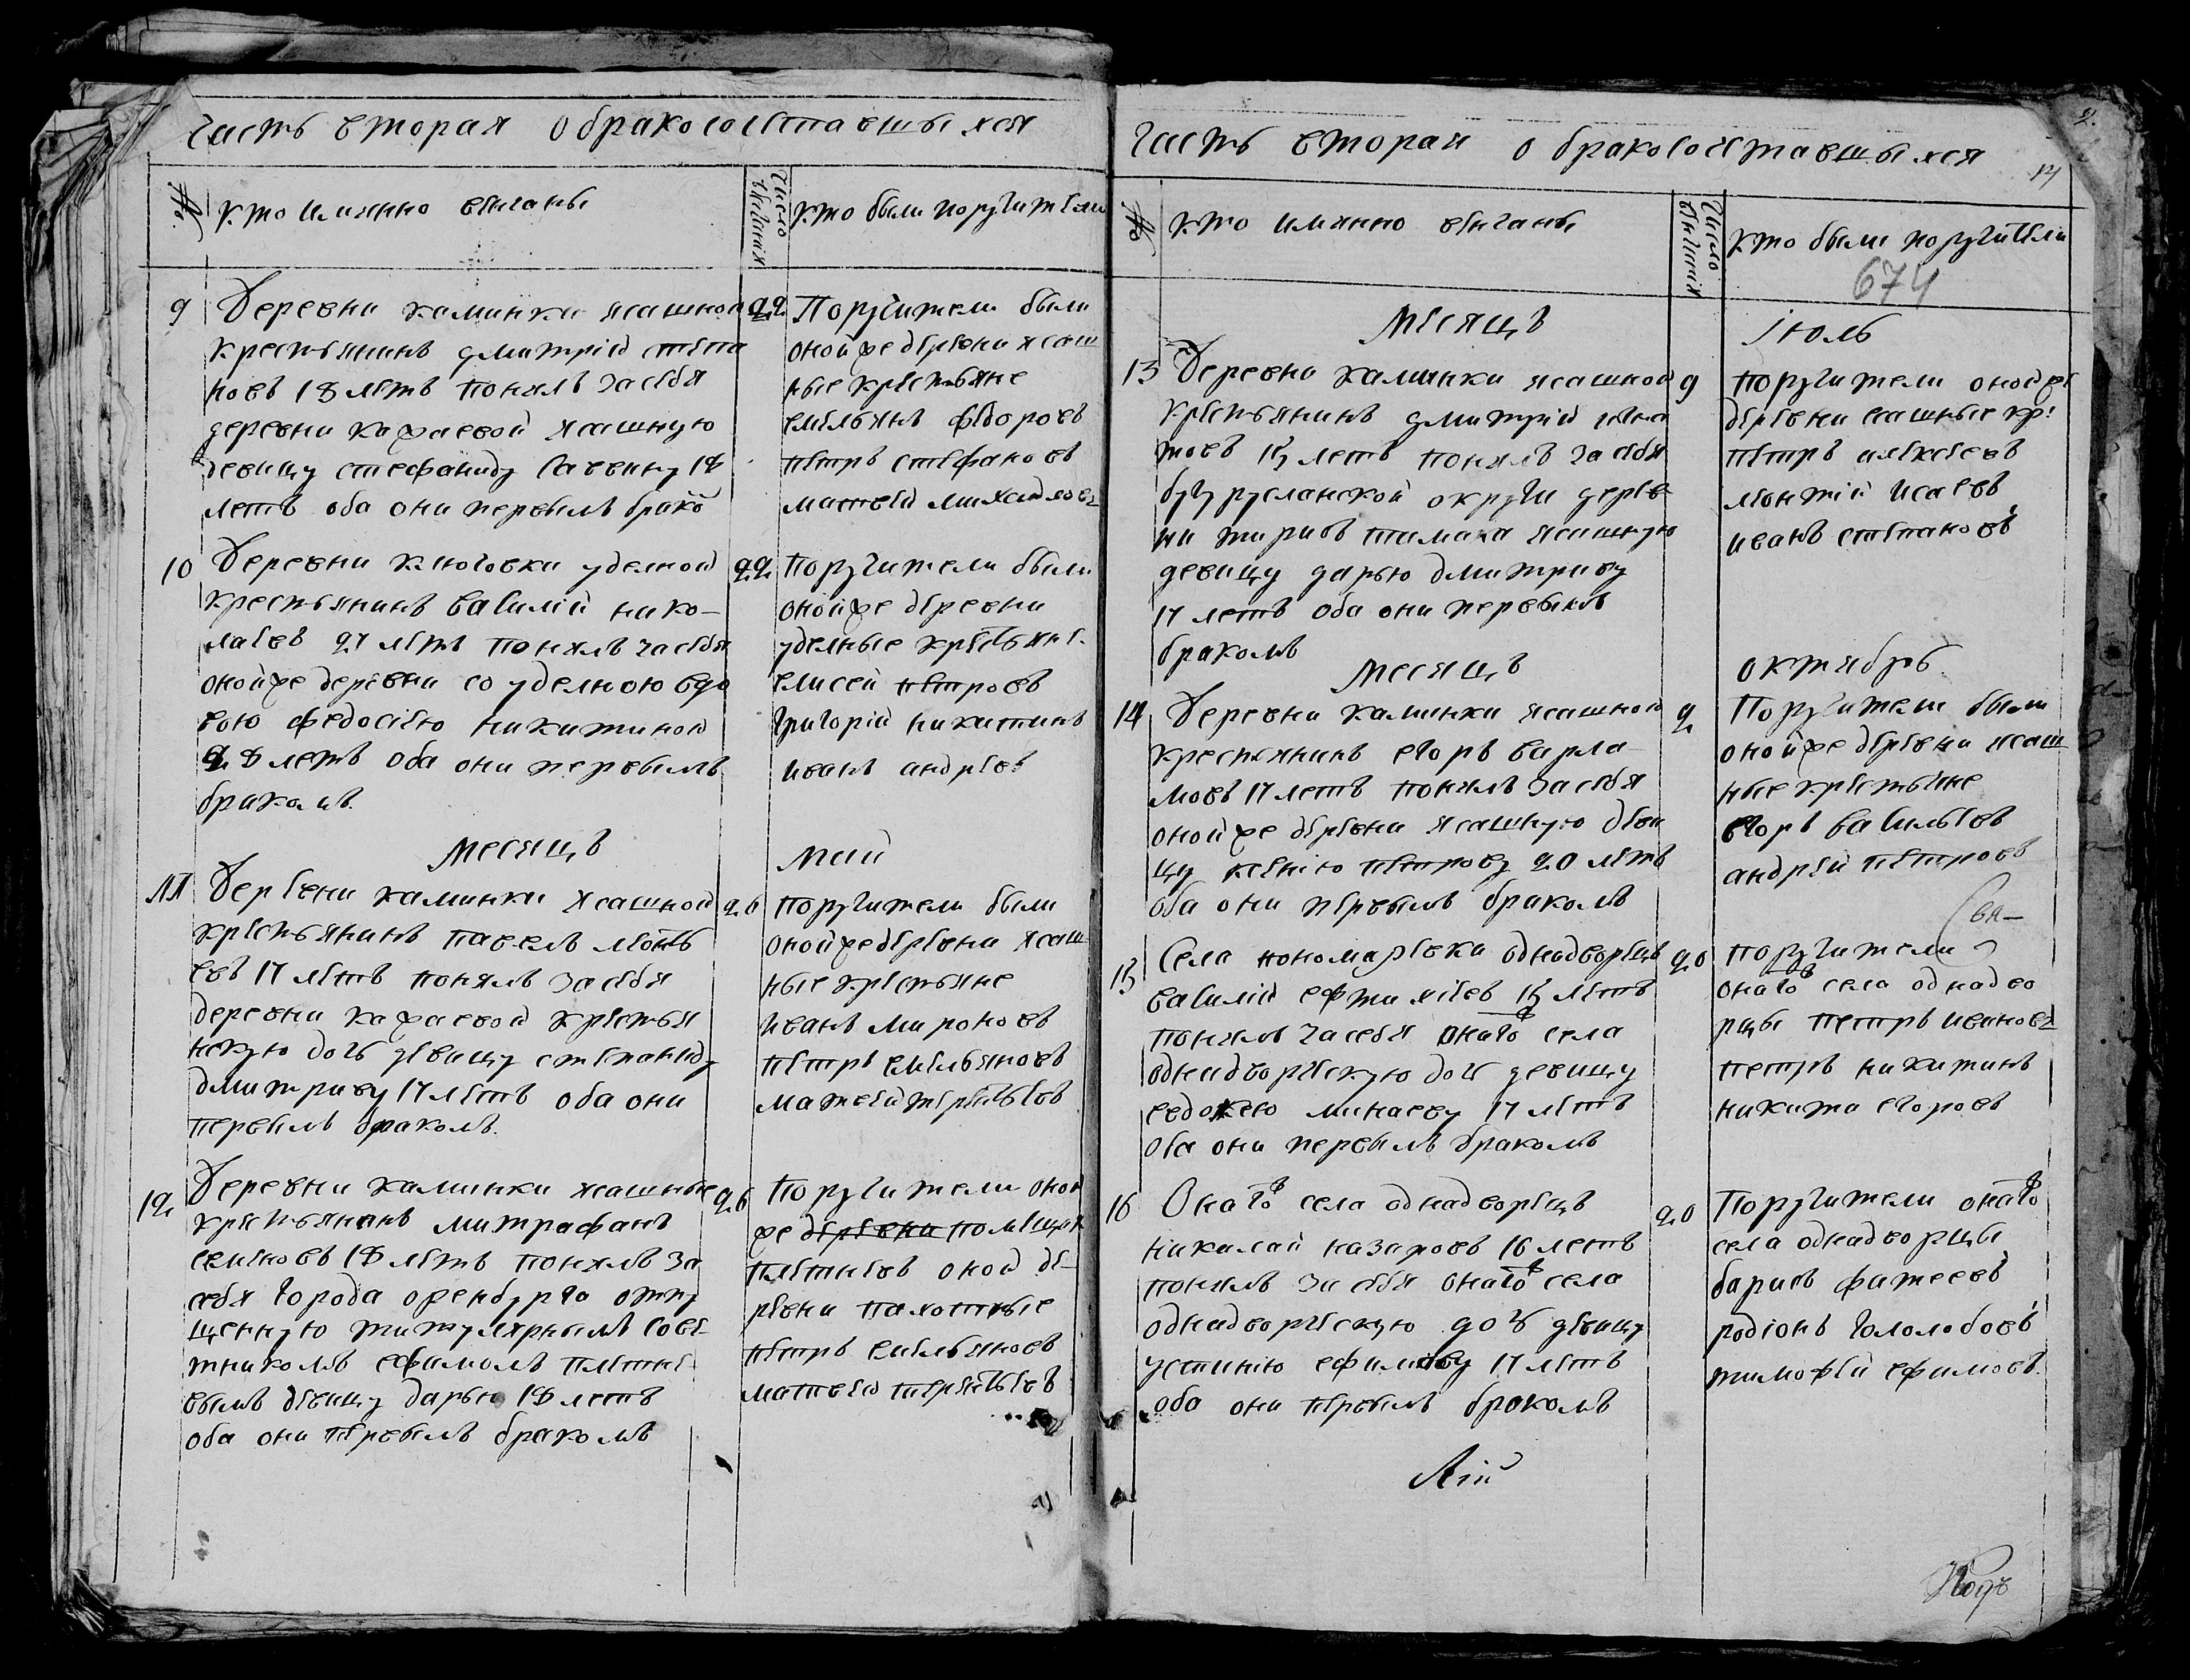 Часть вторая о бракосочетавшыхся
№ кто имянно венчаны
число венчания
кто были поручители
9 Деревни каминки ясашной 22
крестьянинъ дмитрій степа
новъ 18 летъ понялъ за себя
деревни кафаевой ясашную
девицу стефаниду савину 18
летъ оба они первымъ брако
Поручители были
оной же деревни ясаш
ные крестьяне
емельянъ федоровъ
петръ стефановъ
матвей михайловъ
10 Деревни ключовки уделной 22
крестьянинъ василій нико-
лаевъ 21 летъ понялъ за себя
оной же деревни со уделною вдо
вою федосією никитиной
28 летъ оба они первымъ
бракомъ
поручители были
оной же деревни
уделные крестьяне
елисей петровъ
григорій никитинъ
иванъ андреевъ
месяцъ май
11 Деревни каминки ясашной 20
крестьянинъ павелъ леонть
евъ 17 летъ понялъ за себя
деревни кафаевой крестья
нскую дочь девицу степаниду
дмитриву 17 летъ оба они
первымъ бракомъ.
поручители были
оной же деревни ясаш
ные крестьяне
иванъ мироновъ
петръ емельяновъ
матвей терентьевъ
12 Деревни каминки ясашные 26
крестьянинъ митрафанъ
семеновъ 18 летъ понялъ за
себя города оренбурга отпу
щенную титулярнымъ сове-
тникомъ ефимомъ плетне
вымъ девицу дарью 18 летъ
оба они первымъ бракомъ
поручители оной
же деревни помещика
плетнева оной де-
ревни
петръ емельяновъ
матвей терентьевъ
Часть вторая о бракосочетавшыхся
2.
14
№ кто имянно венчаны
число венчания
кто были поручители
674
месяцъ іюль
13 Деревни каминки ясашной 9
крестьянинъ дмитрій
товъ 15 летъ понялъ за себя
бугурусланской округи дерев
ни ясашную
девицу дарью дмитриву
17 летъ оба они первымъ
бракомъ
поручители оной же
деревни сашные кре
петръ алексеевъ
леонтій исаевъ
иванъ степановъ
месяцъ октябрь
14 Деревни каминки ясашной 2
крестьянинъ егоръ варла
мовъ 17 летъ понялъ за себя
оной же деревни ясашную деви
цу ксенію петрову 20 летъ
оба они первымъ бракомъ
Поручители были
оной же деревни ясаш
ные крестьяне
егоръ васильевъ
андрей петровъ
15 Села пономаревки однадворецъ 20
василій ефтихіевъ 15 летъ
понялъ за себя онаго села
однадворческую дочь девицу
евдокею минаеву 17 летъ
оба они первымъ бракомъ
поручители
онаго села однадво
рцы петръ ивановъ
петръ никитинъ
никита егоровъ
16 Онаго села однадворецъ 20
николай назаровъ 16 летъ
понялъ за себя онаго села
однадворческую дочь девицу
устинію ефимову 17 летъ
оба они первымъ бракомъ
Поручители онаго
села однадворцы
барисъ фатеевъ
родіонъ гололобовъ
тимофей ефимовъ.